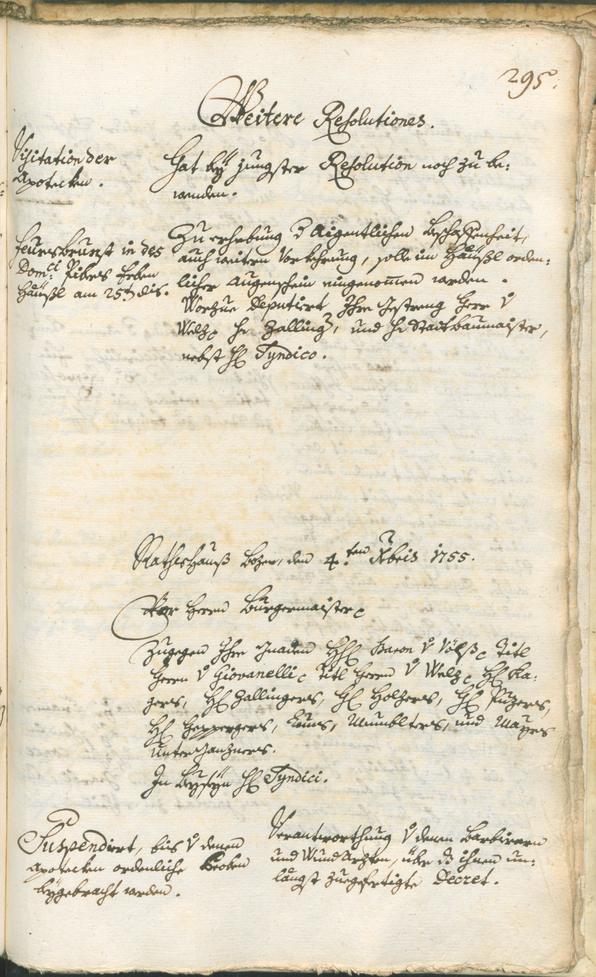 295.
Weitere Resolutiones.
Visitation der
Apotecken.
Hat bey jüngster Resolution noch zu be-
wenden.
Feuersbrunst in des
Dom: Ribers Erben
Häusl am 25t dis.
Zu erhebung d aigentlichen Beschaffenheit,
auch weitern Vorkehrung, solle im Häusl orden-
licher Augenschein eingenommen werden.
Worzue Deputiert Ihre Gestreng Herr v
Welz, H Zalling, und H Stadtbaumaister,
nebst H Syndico.
Rathshauß Bozen, den 4.ten Xbris 1755.
Vor Herrn Burgermaister
Zugegen Ihro Gnaden H Baron v Völß Titl
Herrn v Giovanelli Titl Herrn v Welz, H
H Zallingers, H Holzers, H
H Heppergers, Mumblters, und Mayrs
In beyseyn H Syndici.
Suspendirt, bis v denen
Apotecken ordenliche Proben
beygebracht werden.
Verantworthung v denen Barbierern
und Wund Arzten, über d ihnen un-
längst zuegefertigte Decret.